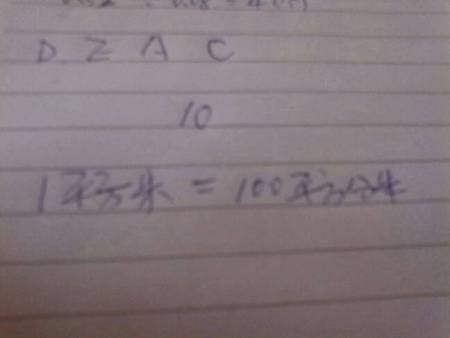 D Z A C
10
1平方米 = 100平方分米